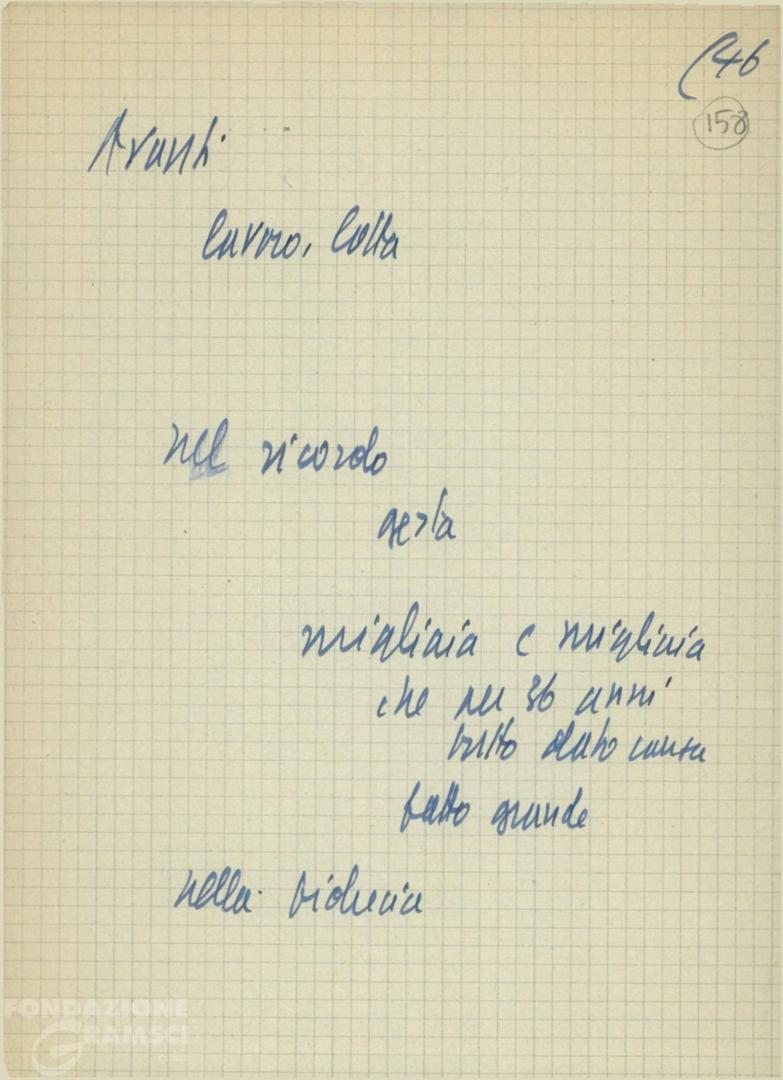 (46
158
Avanti
lavoro, lotta
nel ricordo
gesta
migliaia e migliaia
che per 36 anni
tutto dato causa
fatto grande
nella fiducia
FONDAZIONE
GRAMSCI